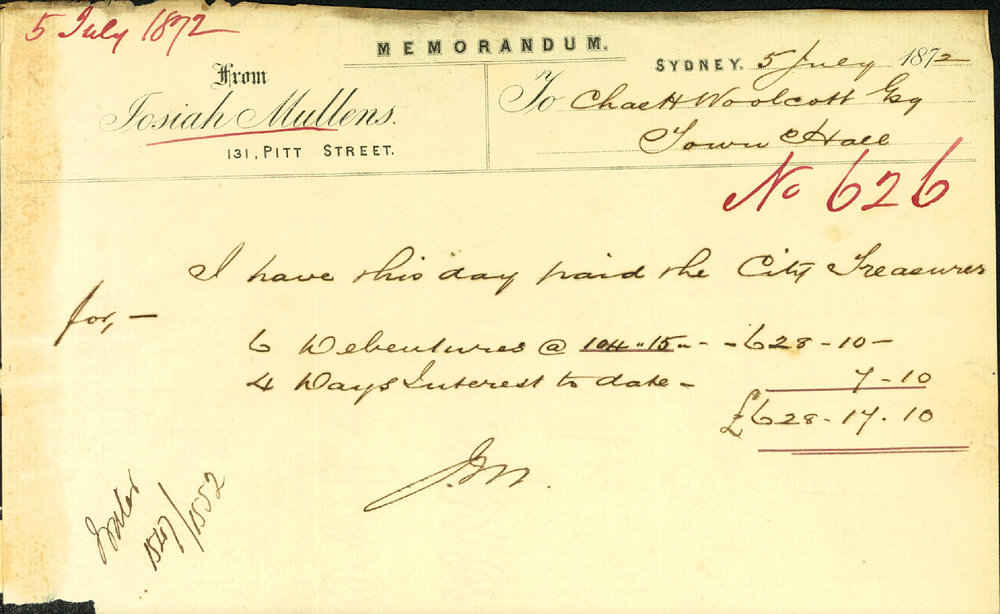 5 July 1872
MEMORANDUM.
From
Josiah Mullens.
131, PITT STREET.
SYDNEY. 5 July 1872
To Chas H Woolcott Esq
Town Hall
No 626
I have this day paid the City Treasurer
for, —
6 Debentures @ 104 " 15 " - - 628 - 10 -
4 Days Interest to date - 7 - 10
£628 - 17 . 10
J.M.
1547/1552